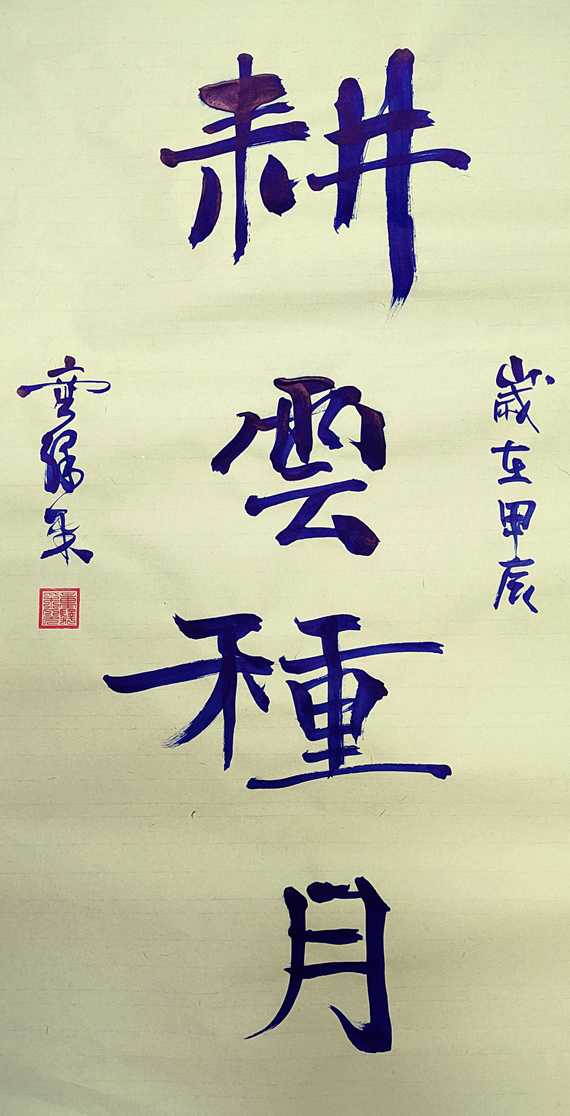 耕雲種月
歲在甲辰